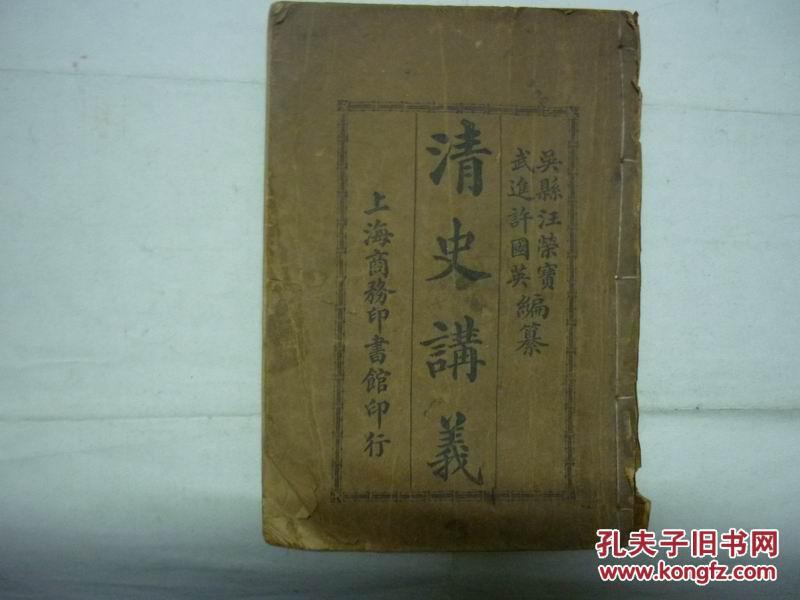 吳縣汪榮寶
武進許國英
編纂
清史講義
上海商務印書館印行
孔夫子旧书网
www.kongfz.com